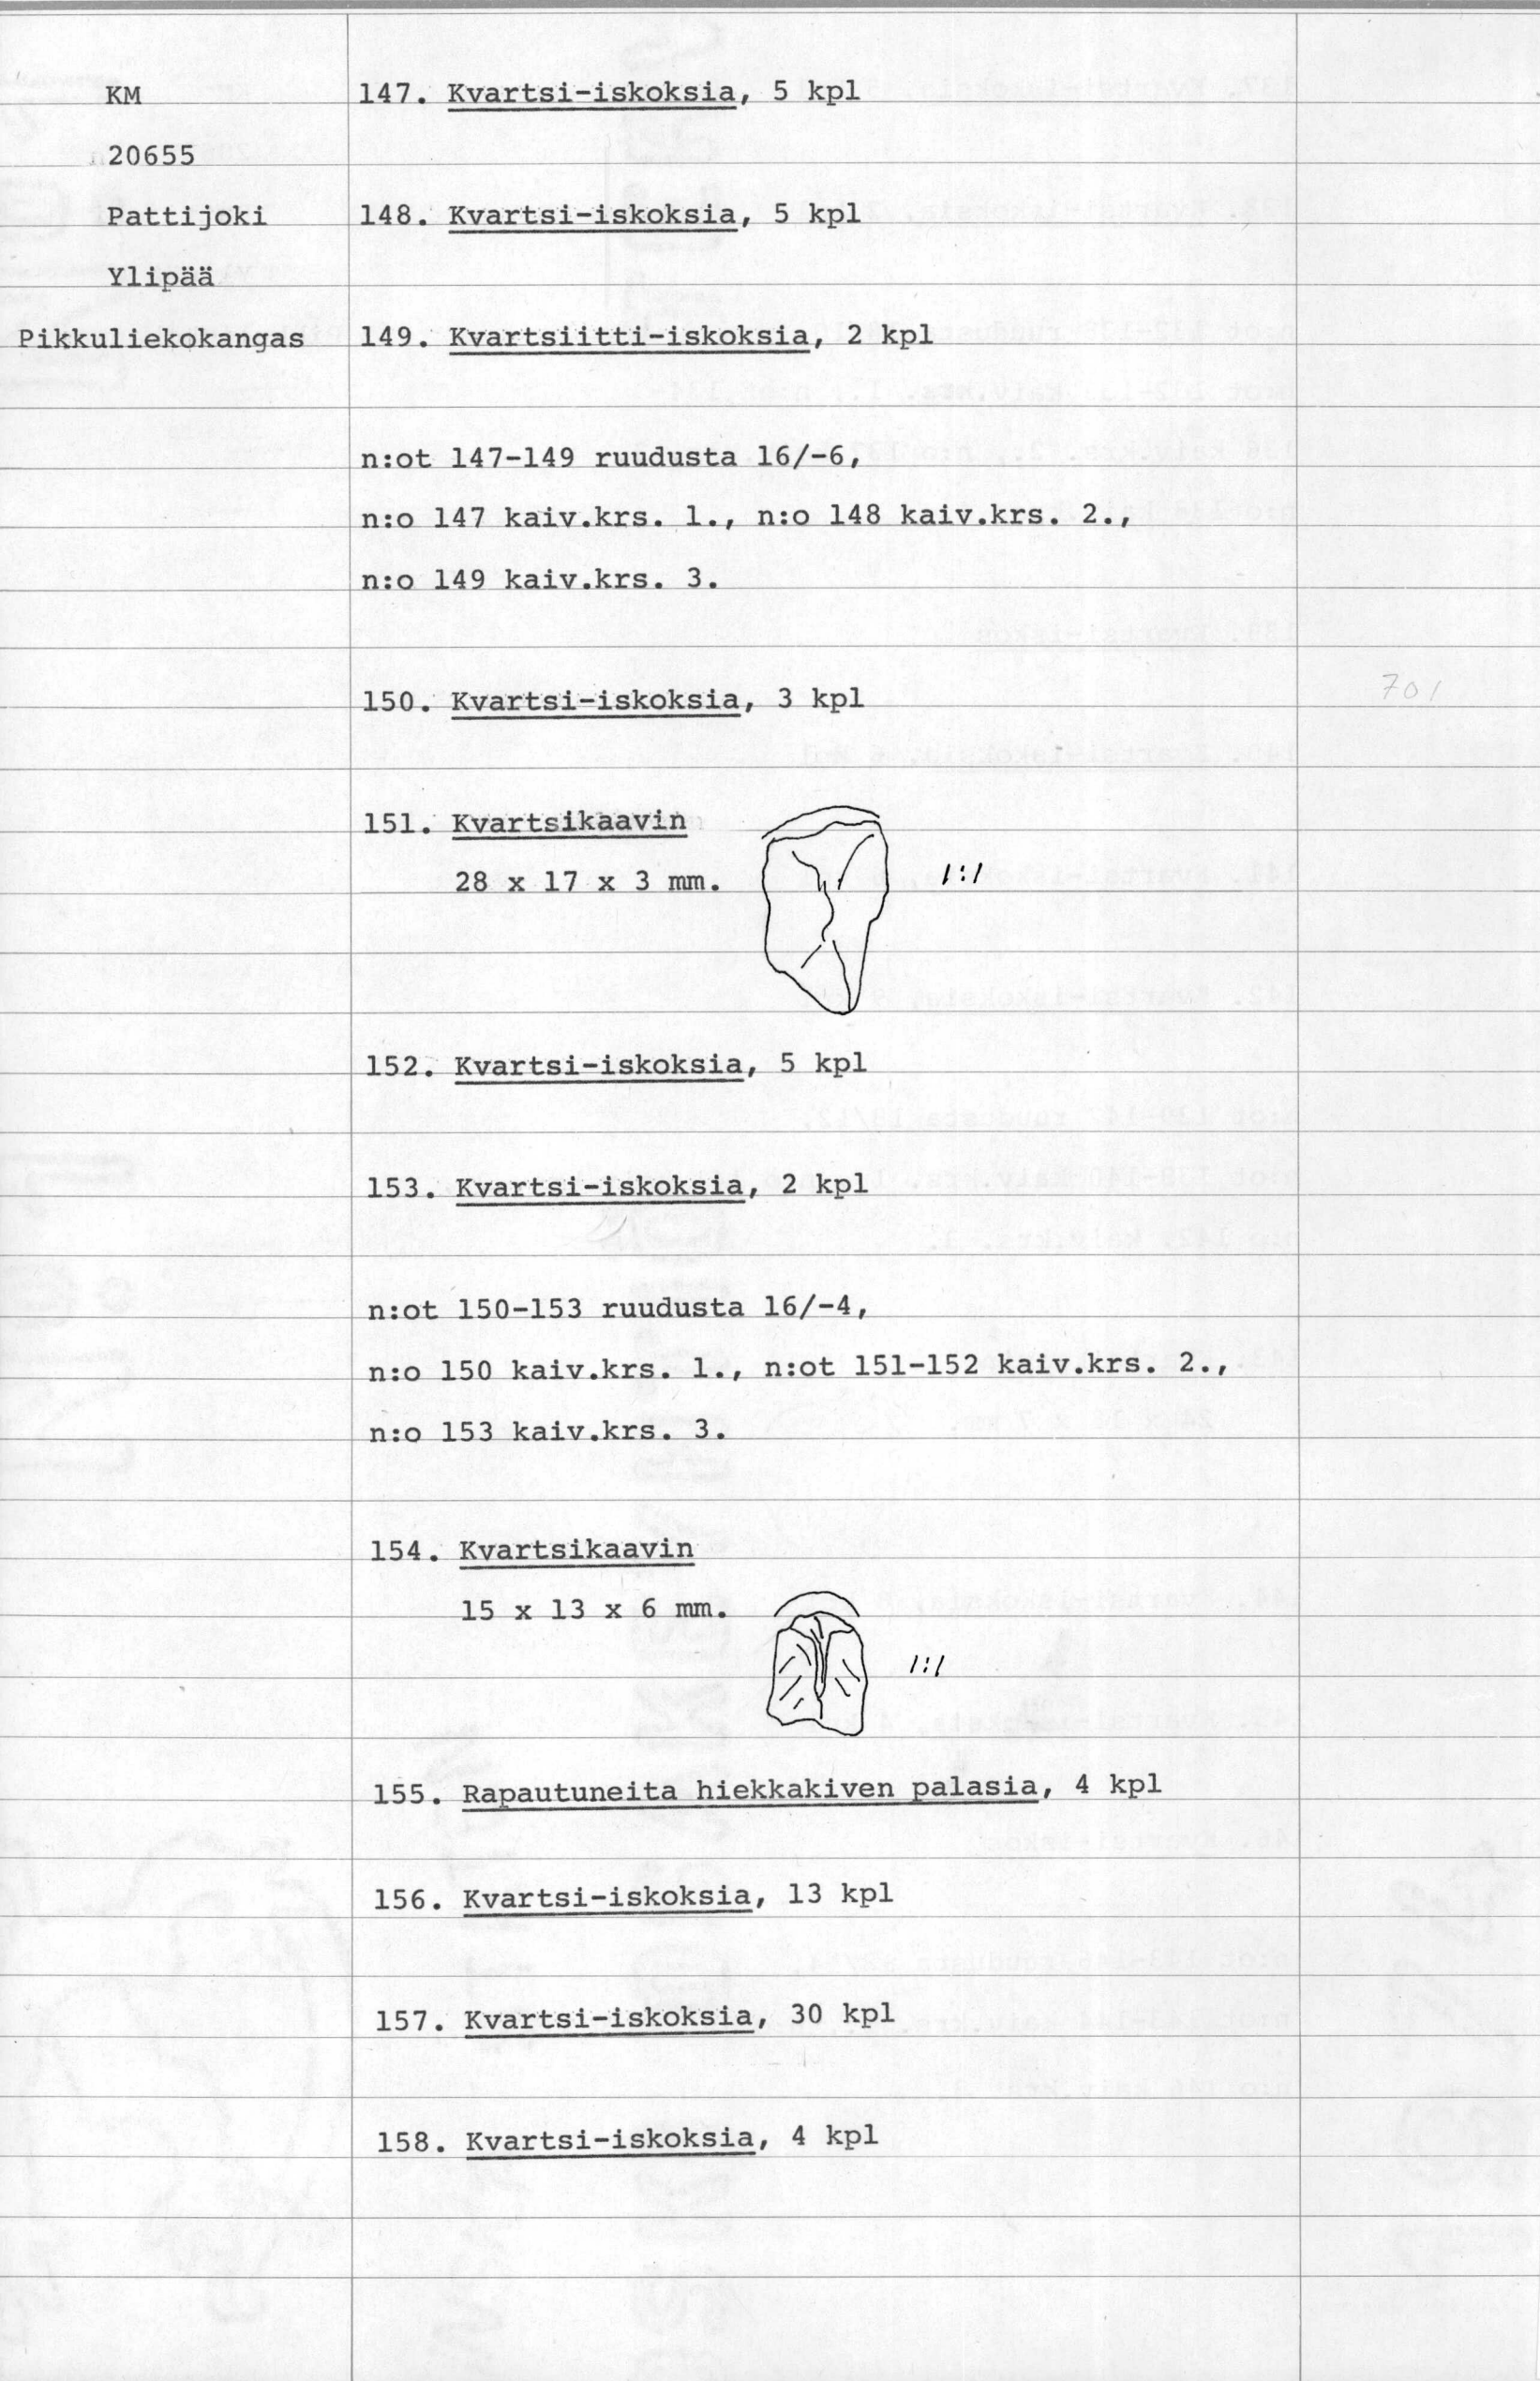 KM
20655
Pattijoki
Ylipää
Pikkuliekokangas
147. Kvartsi-iskoksia, 5 kpl
148. Kvartsi-iskoksia, 5 kpl
149. Kvartsiitti-iskoksia, 2 kpl
n:ot 147-149 ruudusta 16/-6,
n:o 147 kaiv.krs. 1., n:o 148 kaiv.krs. 2.,
n:o 149 kaiv.krs. 3.
150. Kvartsi-iskoksia, 3 kpl
701
151. Kvartsikaavin
28 x 17 x 3 mm.
1:1
152. Kvartsi-iskoksia, 5 kpl
153. Kvartsi-iskoksia, 2 kpl
n:ot 150-153 ruudusta 16/-4,
n:o 150 kaiv.krs. 1., n:ot 151-152 kaiv.krs. 2.,
n:o 153 kaiv.krs. 3.
154. Kvartsikaavin
15 x 13 x 6 mm.
1:1
155. Rapautuneita hiekkakiven palasia, 4 kpl
156. Kvartsi-iskoksia, 13 kpl
157. Kvartsi-iskoksia, 30 kpl
158. Kvartsi-iskoksia, 4 kpl